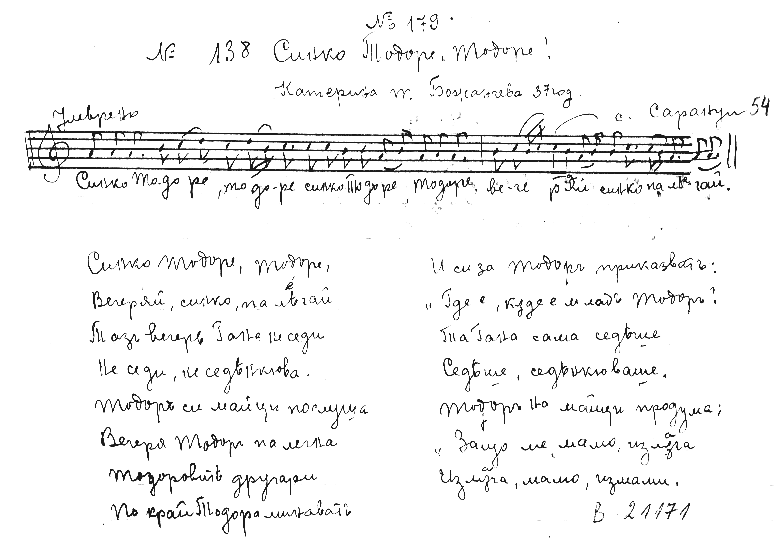 № 179.
№ 138 Синко Тодоре, Тодоре!
Катерина т. Божанчева 37 год.
с. Саранци 54
Синко Тодоре, тодоре синко Тодоре тодоре, вечеряй синко па лѣгай.
Синко Тодоре, Тодоре,
Вечеряй, синко, па лѣгай
Тазъ вечерь Гана не седи
Не седи, не седѣнкюва.
Тодоръ си майци послуша
Вечеря Тодор па легна
Тодоровитѣ другари
По край Тодора минаватъ
И си за Тодоръ приказватъ:
„Где е, където е младъ Тодоръ?
Та Гана сама седѣше
Седѣше, седѣнкюваше.
Тодоръ на майци продума:
„Защо ме, мамо, излѫга
Излѫга, мамо, измами.
В 21171